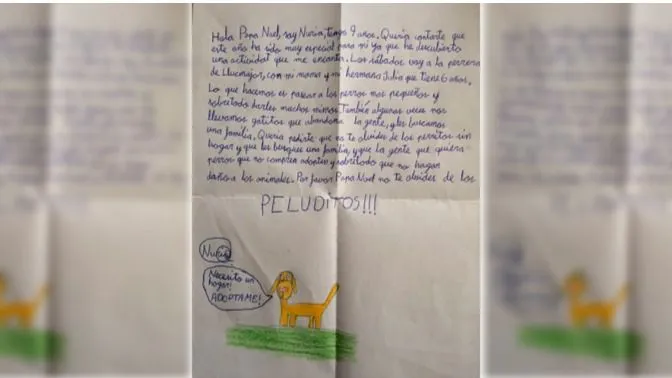 Hola Papa Noel, soy Nuria, tengo 9 años. Queria contarte que
este año ha sido muy especial para mi ya que he descubierto
una actividad que me encanta. Los sábados voy a la perrera
de Llucmajor, con mi mama y mi hermana Julia que tiene 6 años.
Lo que hacemos es pasear a los perros mas pequeños y
sobretodo darles muchos mimos. También algunas veces nos
llevamos gatitos que abandona la gente, y les buscamos
una familia. Queria pedirte que no te olvides de los perritos sin
hogar y que les busques una familia, y que la gente que quiera
perros que no compren adopten y sobretodo que no hagan
daño a los animales. Por favor Papa Noel no te olvides de los
PELUDITOS!!!
Nuria
Necesito un
hogar!
ADOPTAME!